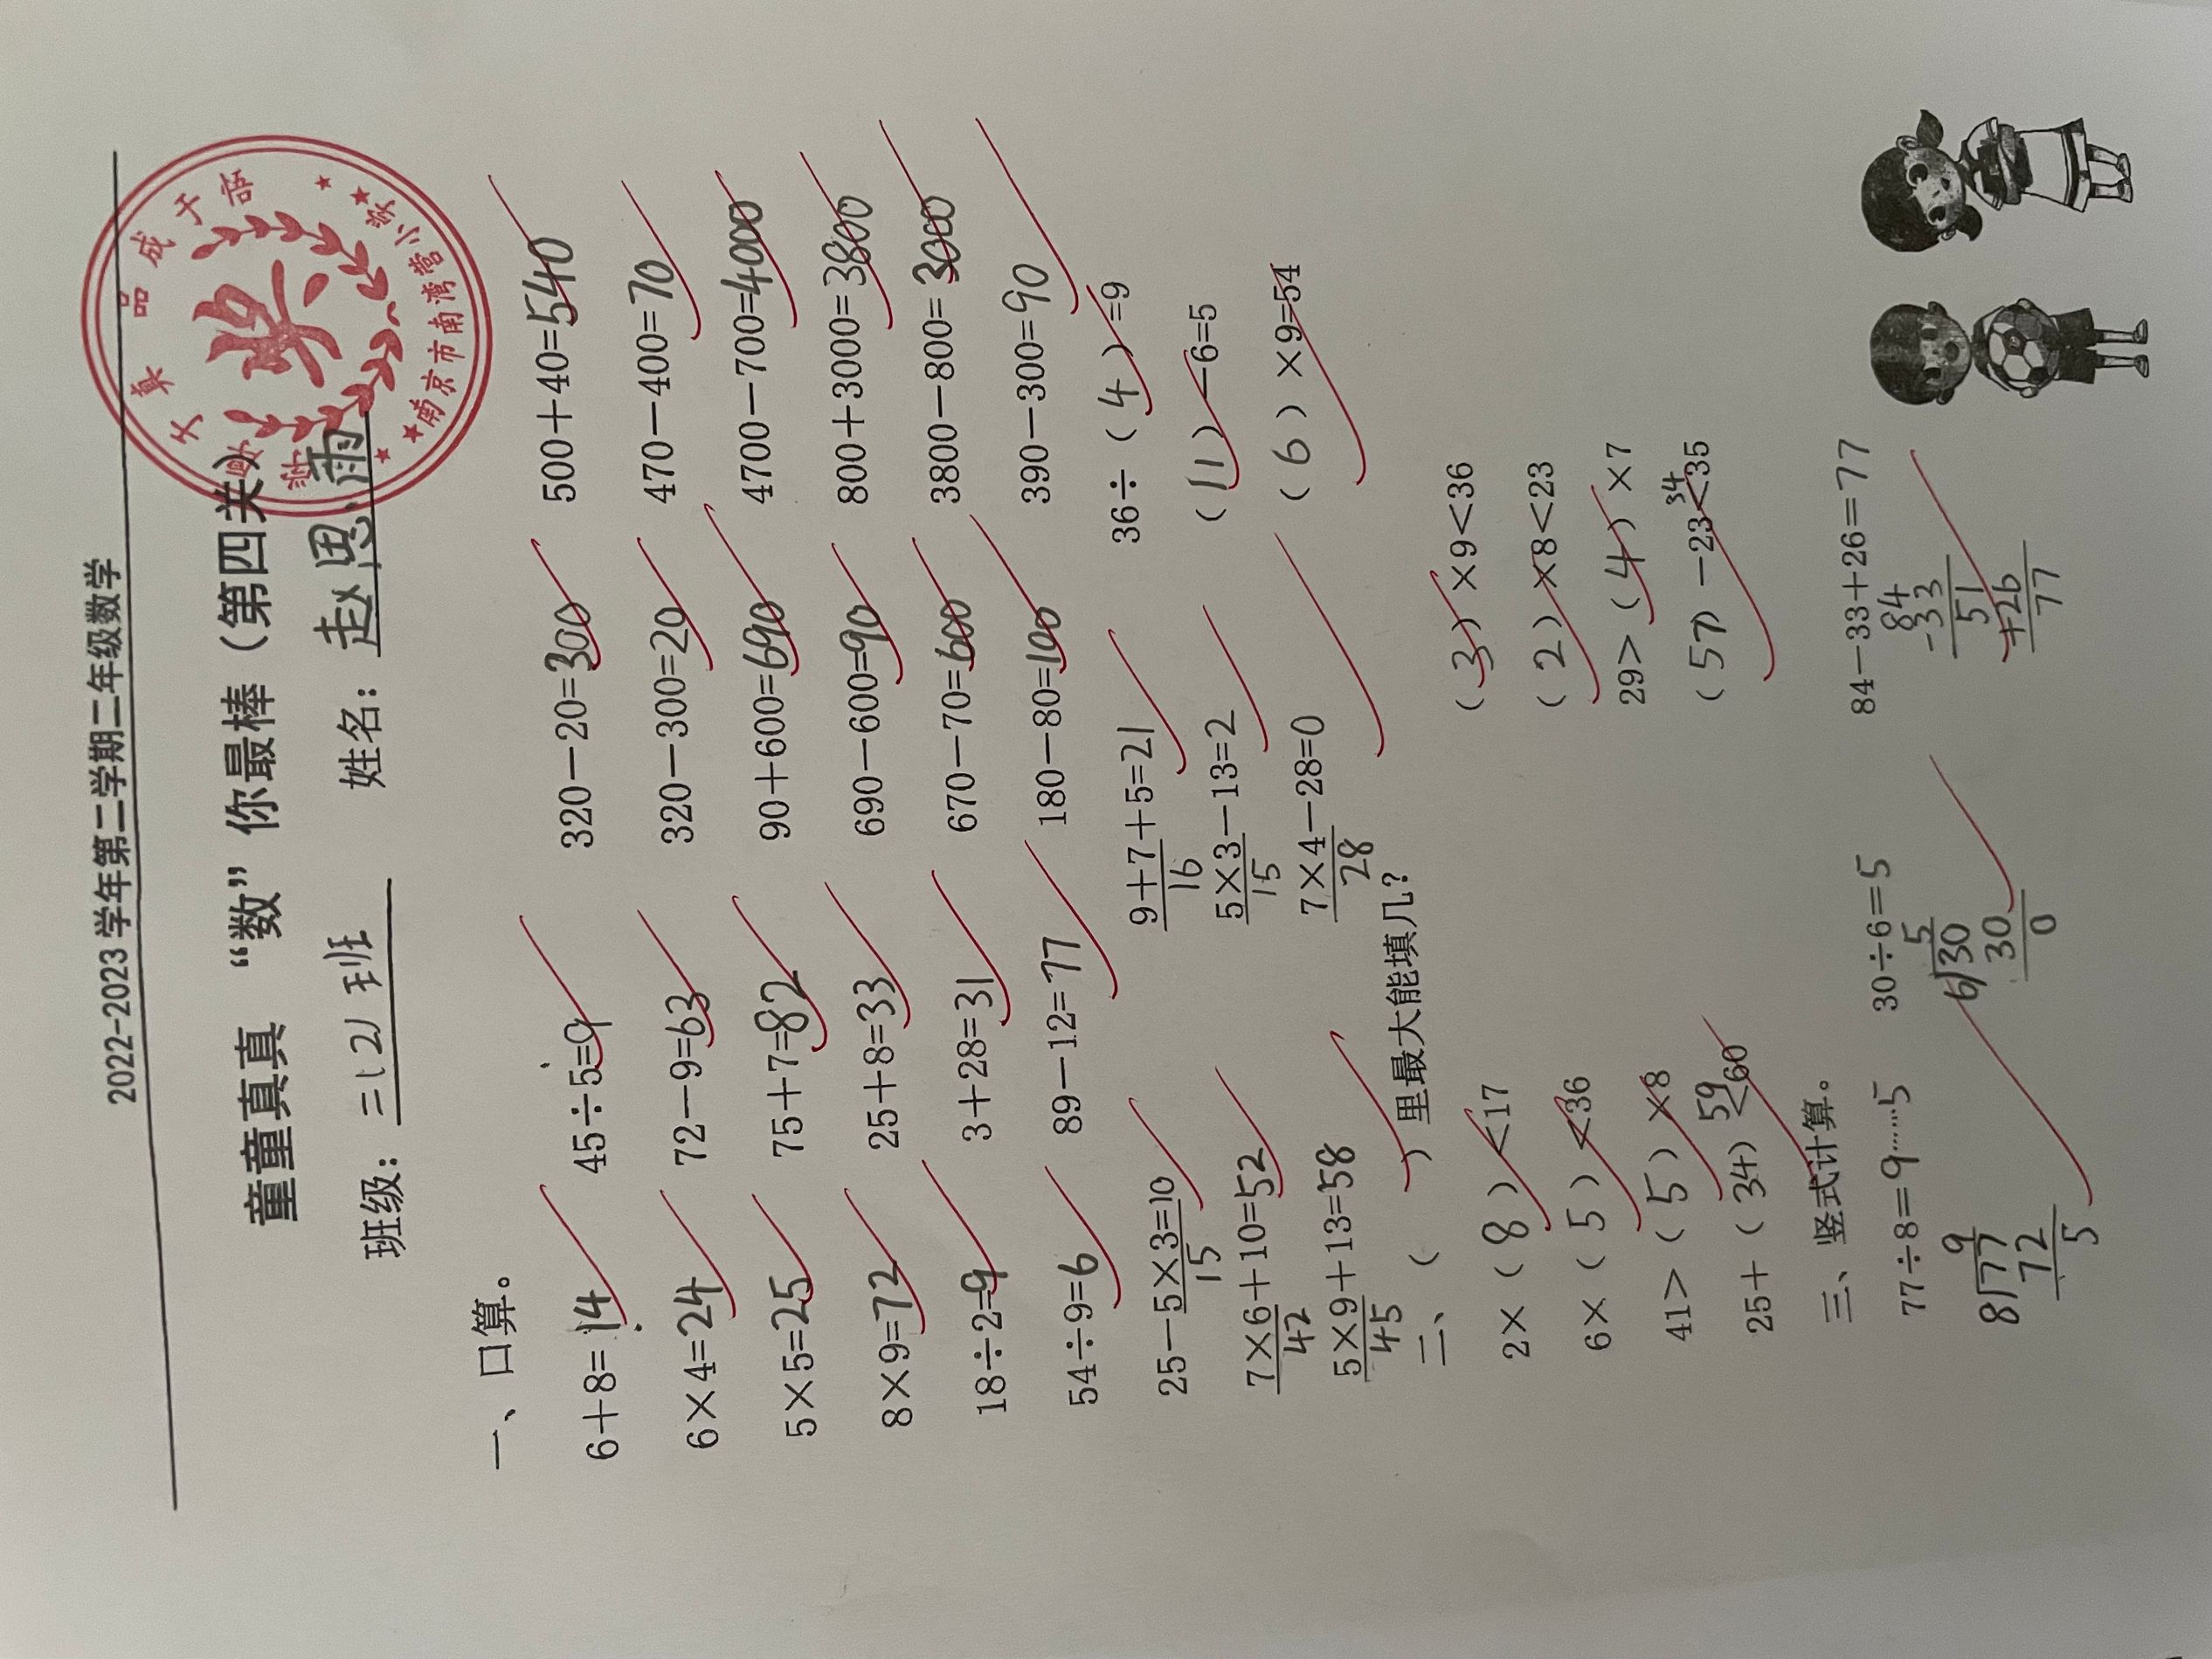 2022-2023学年第二学期二年级数学
童童真真 “数” 你最棒（第四关）
班级：二(2)班 姓名：赵思雨
奖
南京市南湾营小学
一、口算。
6+8=14 45÷5=9 320-20=300 500+40=540
6×4=24 72-9=63 320-300=20 470-400=70
5×5=25 75+7=82 90+600=690 4700-700=4000
8×9=72 25+8=33 690-600=90 800+3000=3800
18÷2=9 3+28=31 670-70=600 3800-800=3000
54÷9=6 89-12=77 180-80=100 390-300=90
25-5×3=10 9+7+5=21 36÷（4）=9
15 16
7×6+10=52 5×3-13=2 （11）-6=5
42 15
5×9+13=58 7×4-28=0 （6）×9=54
45 28
二、（ ）里最大能填几？
2×（8）<17 （3）×9<36
6×（5）<36 （2）×8<23
41>（5）×8 29>（4）×7
59 34
25+（34）<60 （57）-23<35
三、竖式计算。
77÷8=9……5 30÷6=5 84-33+26=77
9 5 84
8 77 6 30 -33
72 30 51
5 0 +26
77